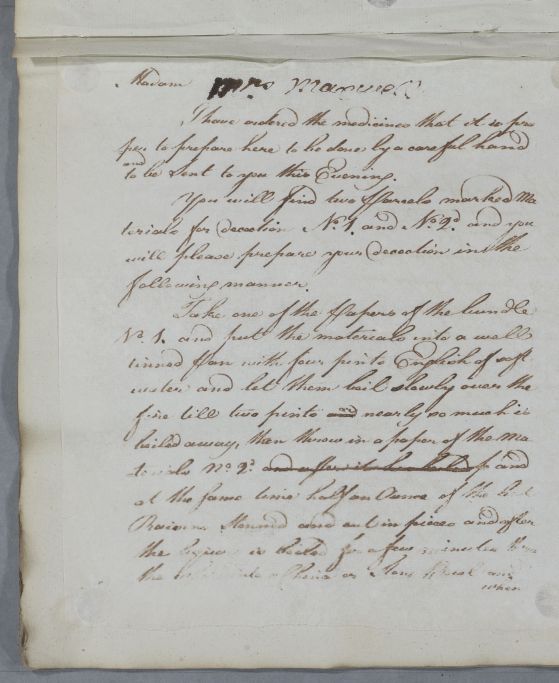 Madam Mrs Maxwell
I have ordered the medicines that it is pro
per to prepare here to be done by a careful hand
and
to be sent to you this Evening.
You will find two Parcels marked Ma
terials for decoction No. 1. and No. 2d. and you
will please prepare your Decoction in the
following manner.
Take one of the Papers of the bundle
No. 1. and put the materials into a well
tinned Pan with four pints English of soft
water and let them boil slowly over the
fire till two pints and nearly so much is
boiled away, then throw in a paper of the Ma
terials No. 2d. and after it has boiled and
at the same time half an Ounce of the best
Raisins stoned and cut in pieces and after
the is boiled for a few minutes
the into a China or Stone Bowl and
when